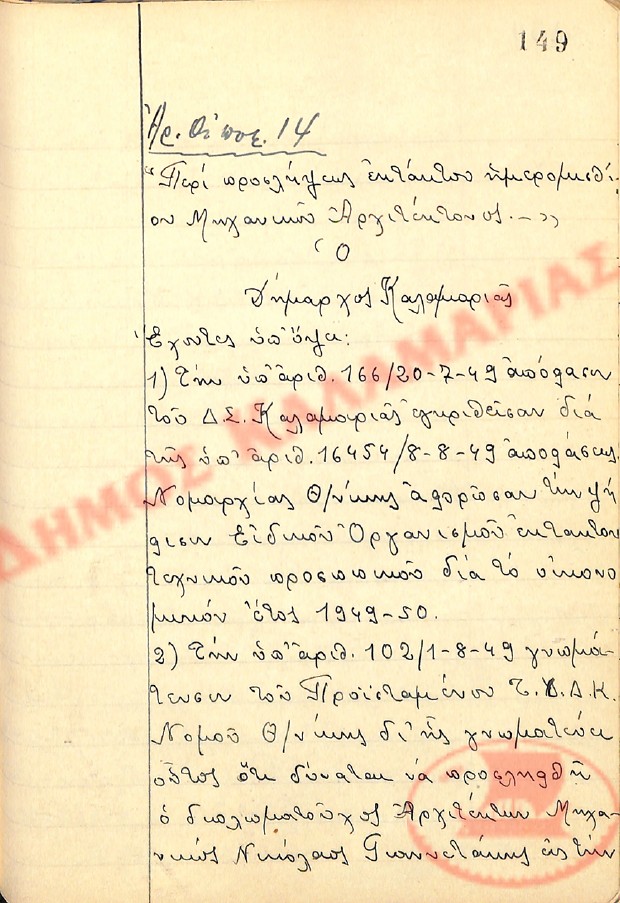 149
Ἀρ. Θἰ ποξ. 14
“Περὶ προσλήψεως ἐκτάκτου ἡμερομισθί-
ου Μηχανικοῦ Ἀρχιτέκτονος.-»
Ὁ
Δήμαρχος Καλαμαριᾶς
Ἔχοντες ὑπ' ὄψει:
1) Τὴν ὑπ' ἀριθ. 166/20-7-49 ἀπόφασιν
τοῦ Δ.Σ. Καλαμαριᾶς ἐγκριθεῖσαν διὰ
τῆς ὑπ' ἀριθ. 16454/8-8-49 ἀποφάσεως
Νομαρχίας Θ/νίκης ἀφορῶσαν τὴν ψή
φισιν Εἰδικοῦ Ὀργανισμοῦ ἐκτάκτου
τεχνικοῦ προσωπικοῦ διὰ τὸ οἰκονο
μικὸν ἔτος 1949-50.
2) Τὴν ὑπ' ἀριθ. 102/1-8-49 γνωμά-
τευσιν τοῦ Προϊσταμένου Τ.Υ.Δ.Κ.
Νομοῦ Θ/νίκης δι' ἧς γνωματεύει
οὗτος ὅτι δύναται νὰ προσληφθῆ
ὁ διπλωματοῦχος Ἀρχιτέκτων Μηχα-
νικὸς Νικόλαος Γιαννετάκης εἰς τὴν
ΔΗΜΟΣ ΚΑΛΑΜΑΡΙΑΣ